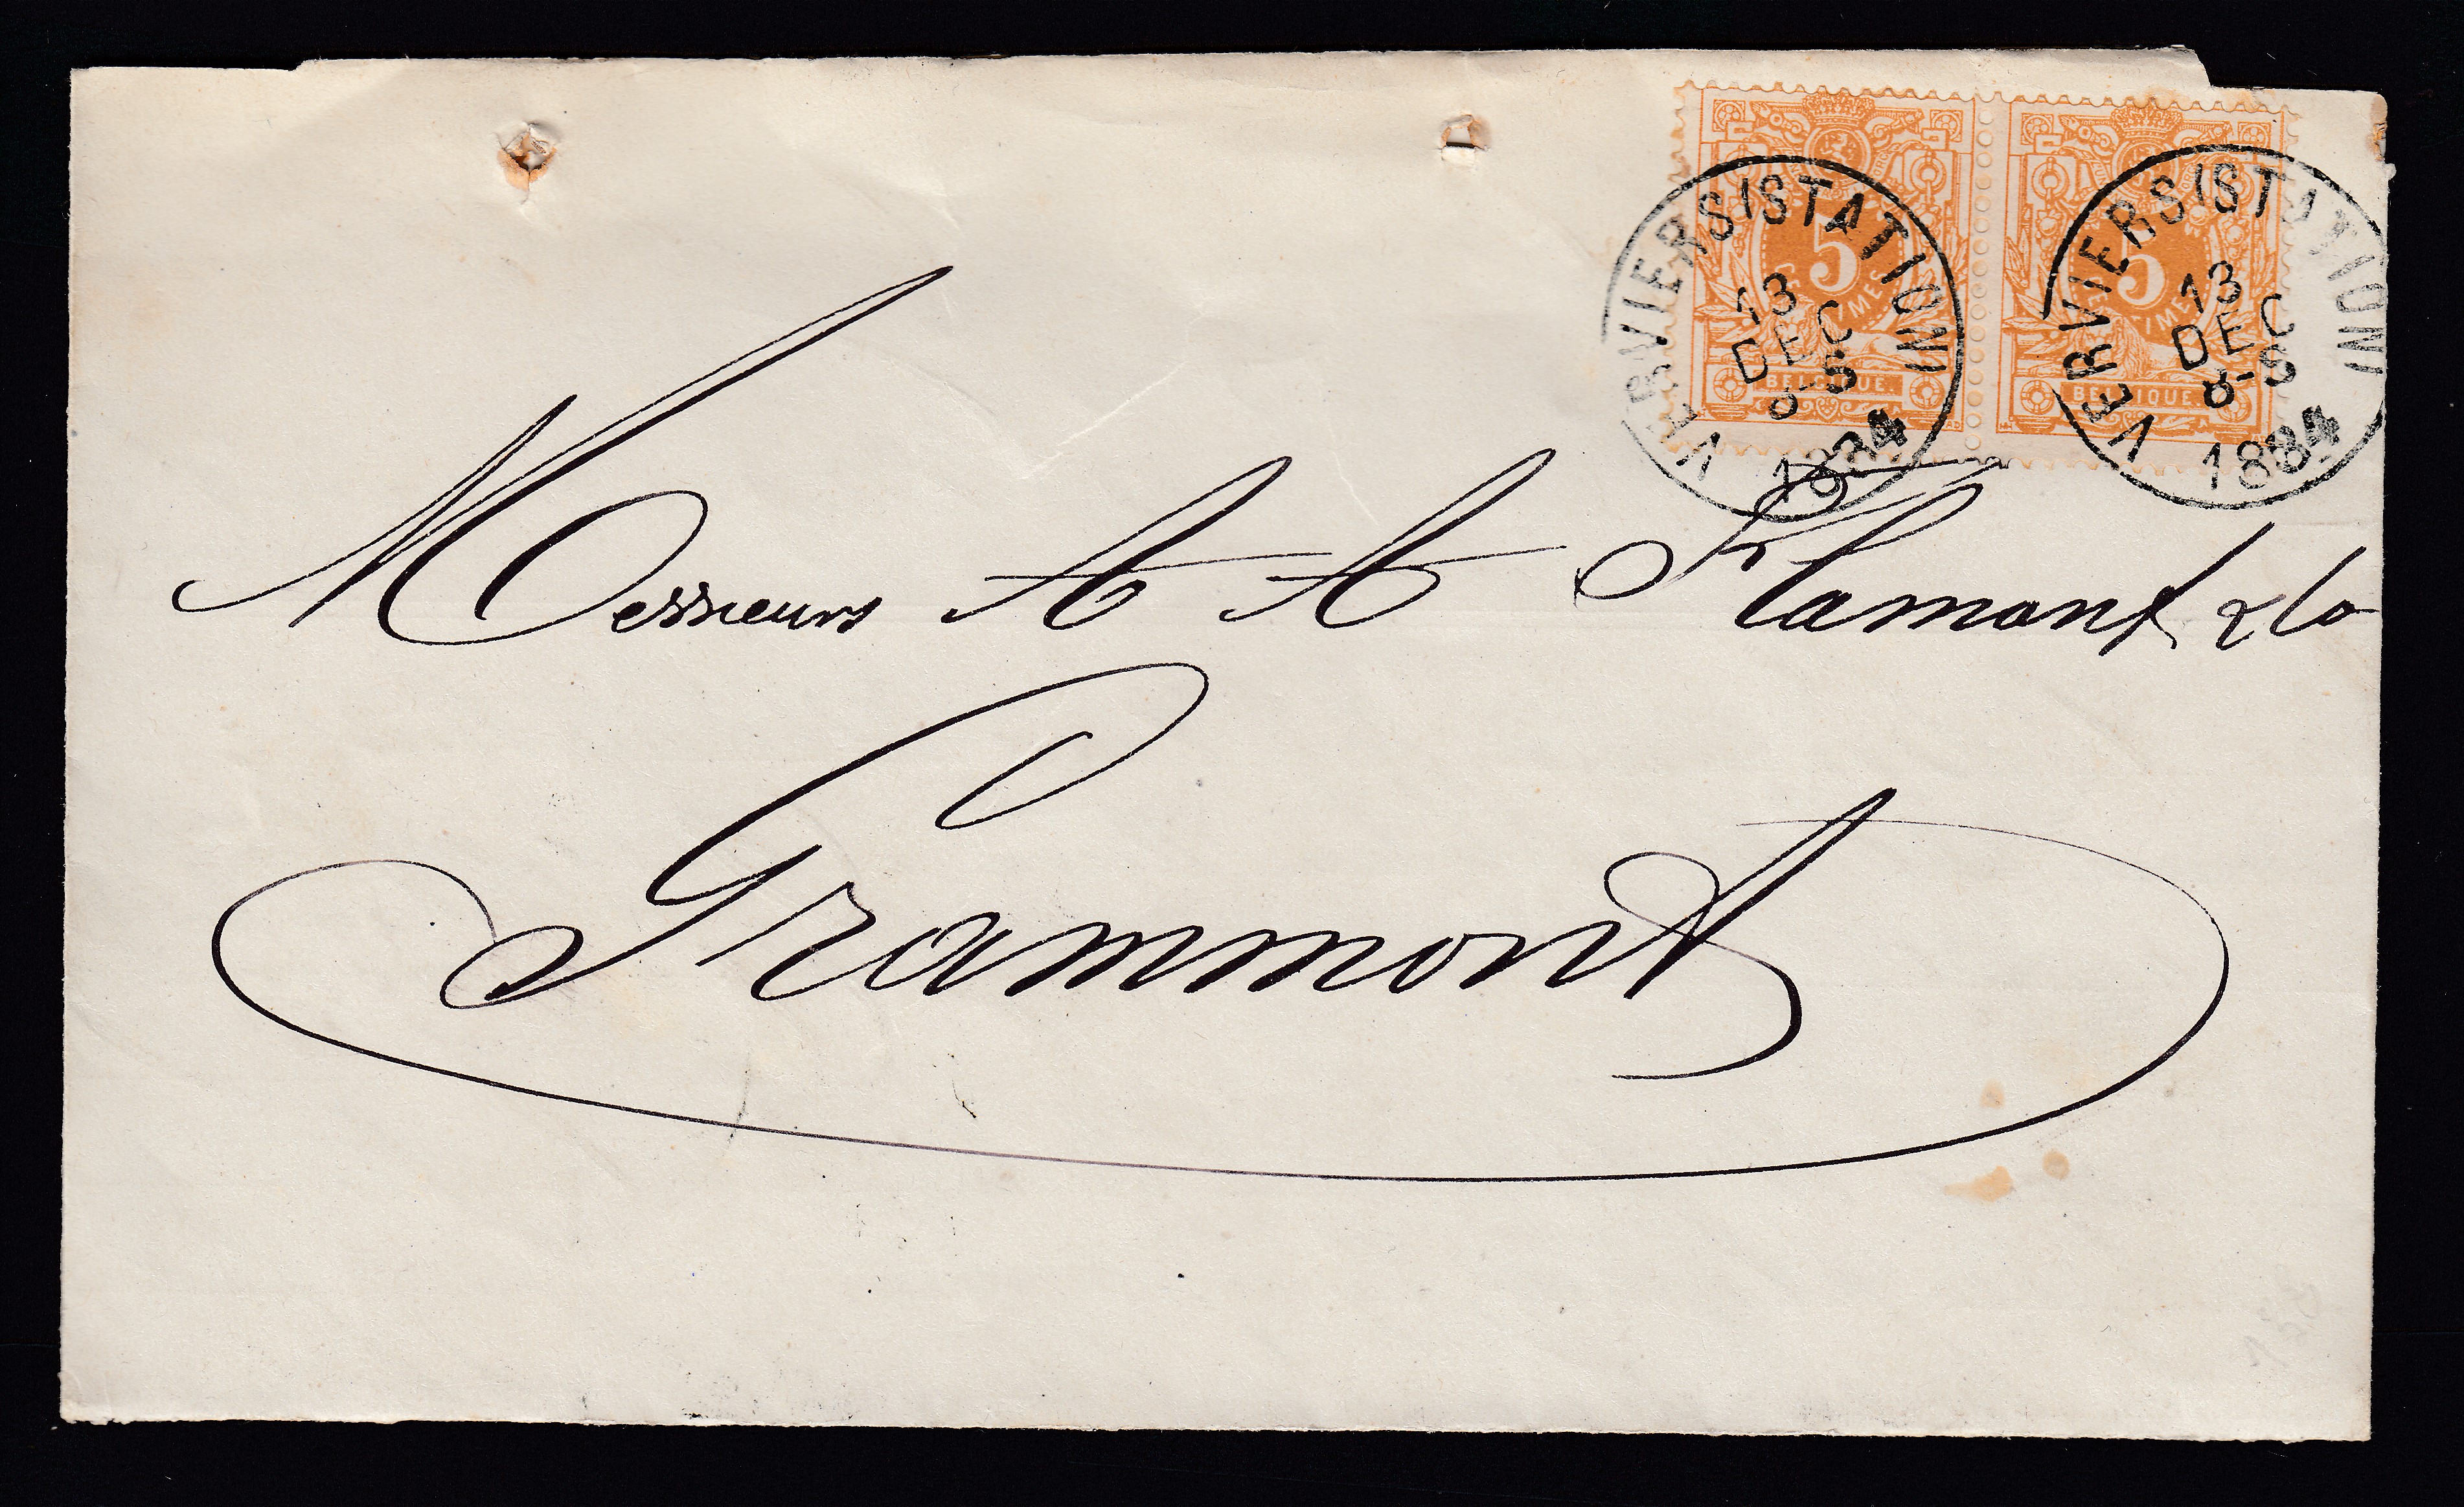 5 5
BELGIQUE BELGIQUE
VERVIERS (STATION)
13
DEC
8-S
1884
VERVIERS (STATION)
13
DEC
8-S
1884
Messieurs A A Flamant & Co
Grammont